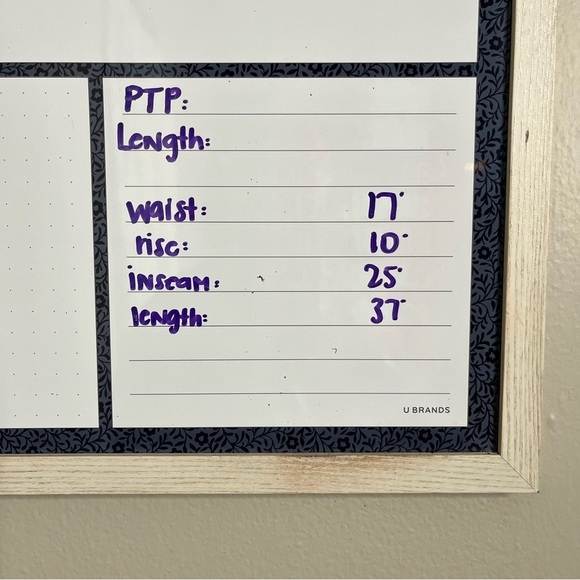 PTP:
Length:
waist: 17"
rise: 10"
inseam: 25"
length: 37"
U BRANDS